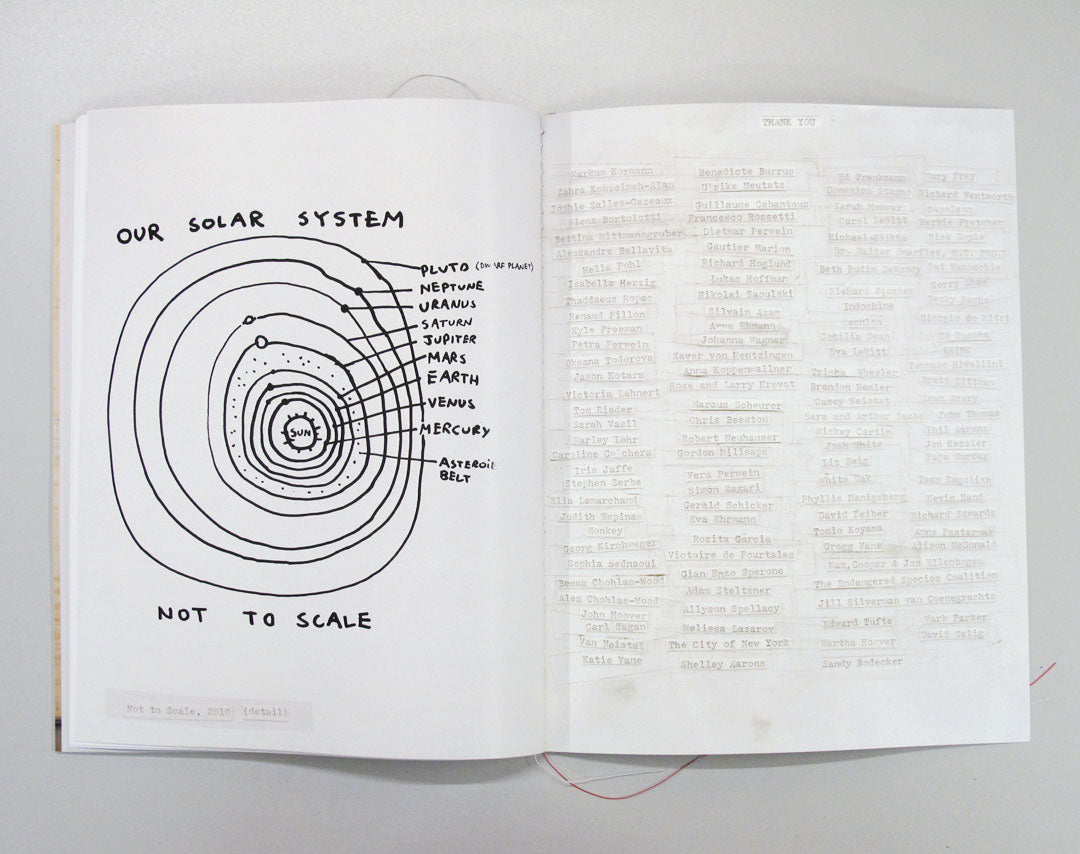 OUR SOLAR SYSTEM
PLUTO (DWARF PLANET)
NEPTUNE
URANUS
SATURN
JUPITER
MARS
EARTH
VENUS
MERCURY
SUN
ASTEROID
BELT
NOT TO SCALE
Not to Scale, 2010 (detail)
THANK YOU
Markus Kormann
Zahra Kohzeimeh-Alam
Sophie Salles-Cazeaux
Elena Bortolotti
Bettina Mittmansgruber
Alessandra Bellavita
Hella Pohl
Isabella Herzig
Thaddaeus Ropac
Renaud Pillon
Kyle Freeman
Petra Perwein
Oksana Todorova
Jason Kotara
Victoria Lehnert
Tom Rieder
Sarah Vasil
Marley Lohr
Caroline
Iris Jaffe
Stephen Zerbs
Elia Lomarchand
Judith Espinas
Monkey
Georg Kirchweger
Sophia Sednaoui
Becca Chohlas-Wood
Alex Chohlas-Wood
John Hoover
Carl Sagan
Van Neistat
Katie Vane
Benedicte Burrus
Ulrike Neutatz
Guillaume Cabantous
Francesco Rossetti
Dietmar Perwein
Gautier Marion
Richard Hoglund
Lukas Hoffman
Nikolai Saoulski
Silvain Azam
Arne Ehmann
Johanna Wagner
Xaver von Mentzingen
Anna Koppenwallner
Rose and Larry Krevat
Marcus Scheurer
Chris Beeston
Robert Neuhauser
Gordon Millsaps
Vera Perwein
Simon Zagari
Gerald Schicker
Eva Ehrmann
Rosita Garcia
Victoire de Pourtales
Gian Enzo Sperone
Adam Steltzner
Allyson Spellacy
Melissa Lazarov
The City of New York
Shelley Aarons
Ed Trenkmann
Domenica Stagno
Sarah Hoover
Carol LeWitt
Michael Zilkha
Dr. Walter Smarslea, M.D. PhD.
Beth Rudin DeWoody
Richard Pischer
Indochine
conlon
Cecilia Dean
Eva LeWitt
Trisha Wheeler
Brandon Remler
Casey Neistat
Sara and Arthur Sachs
Mickey Cartin
Josh White
Liz Swig
White Oak
Phyllis Hanigsberg
David Leiber
Tomio Koyama
Gregg Vane
Max, Cooper & Jon Ellenbogen
The Endangered Species Coalition
Jill Silverman van Coenegrachts
Edward Tufte
Martha Hoover
Sandy Bodecker
Mary Frey
Richard Wentworth
Napoleon
Herbie Fletcher
Nick Doyle
Pat Manocchia
Kerry Shaw
Becky Sachs
Giorgio de Mitri
Ed Ruscha
KRINK
Tommaso Rivellini
Brett Littman
Sean Avery
John Thomas
Phil Aarons
Jon Kessler
Papa Murray
Team Regolith
Kevin Hand
Richard Edwards
Anne Pasternak
Alison McDonald
Mark Parker
David Selig